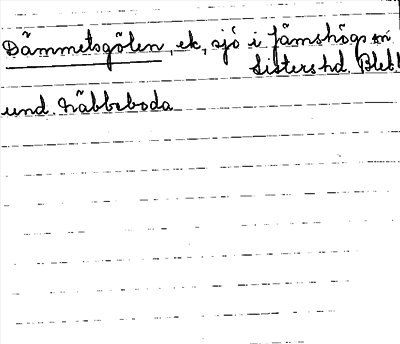 Dämmetsgölen, ek, sjö i Jämshögs sn
Listers hd. Blek.
und. Näbbeboda